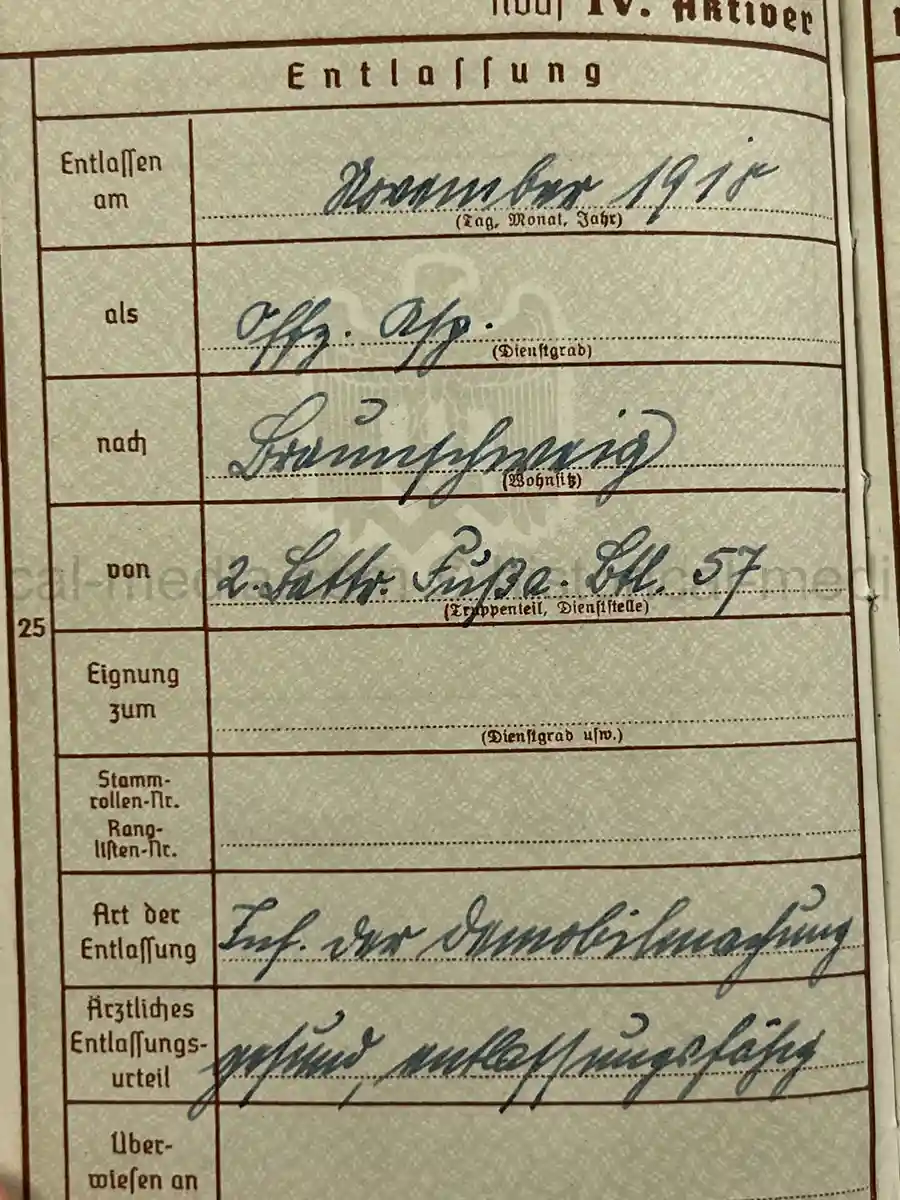 Noch IV. Aktiver
Entlassung
Entlassen am
November 1918
(Tag, Monat, Jahr)
als
Offz. Asp.
(Dienstgrad)
nach
Braunschweig
(Wohnsitz)
von
2. Battr. Fußa. Btl. 57
(Truppenteil, Dienststelle)
25
Eignung
zum
(Dienstgrad usw.)
Stamm-
rollen-Nr.
Rang-
listen-Nr.
Art der
Entlassung
Inf. der Demobilmachung
Ärztliches
Entlassungs-
urteil
gesund, entlassungsfähig
Über-
wiesen an